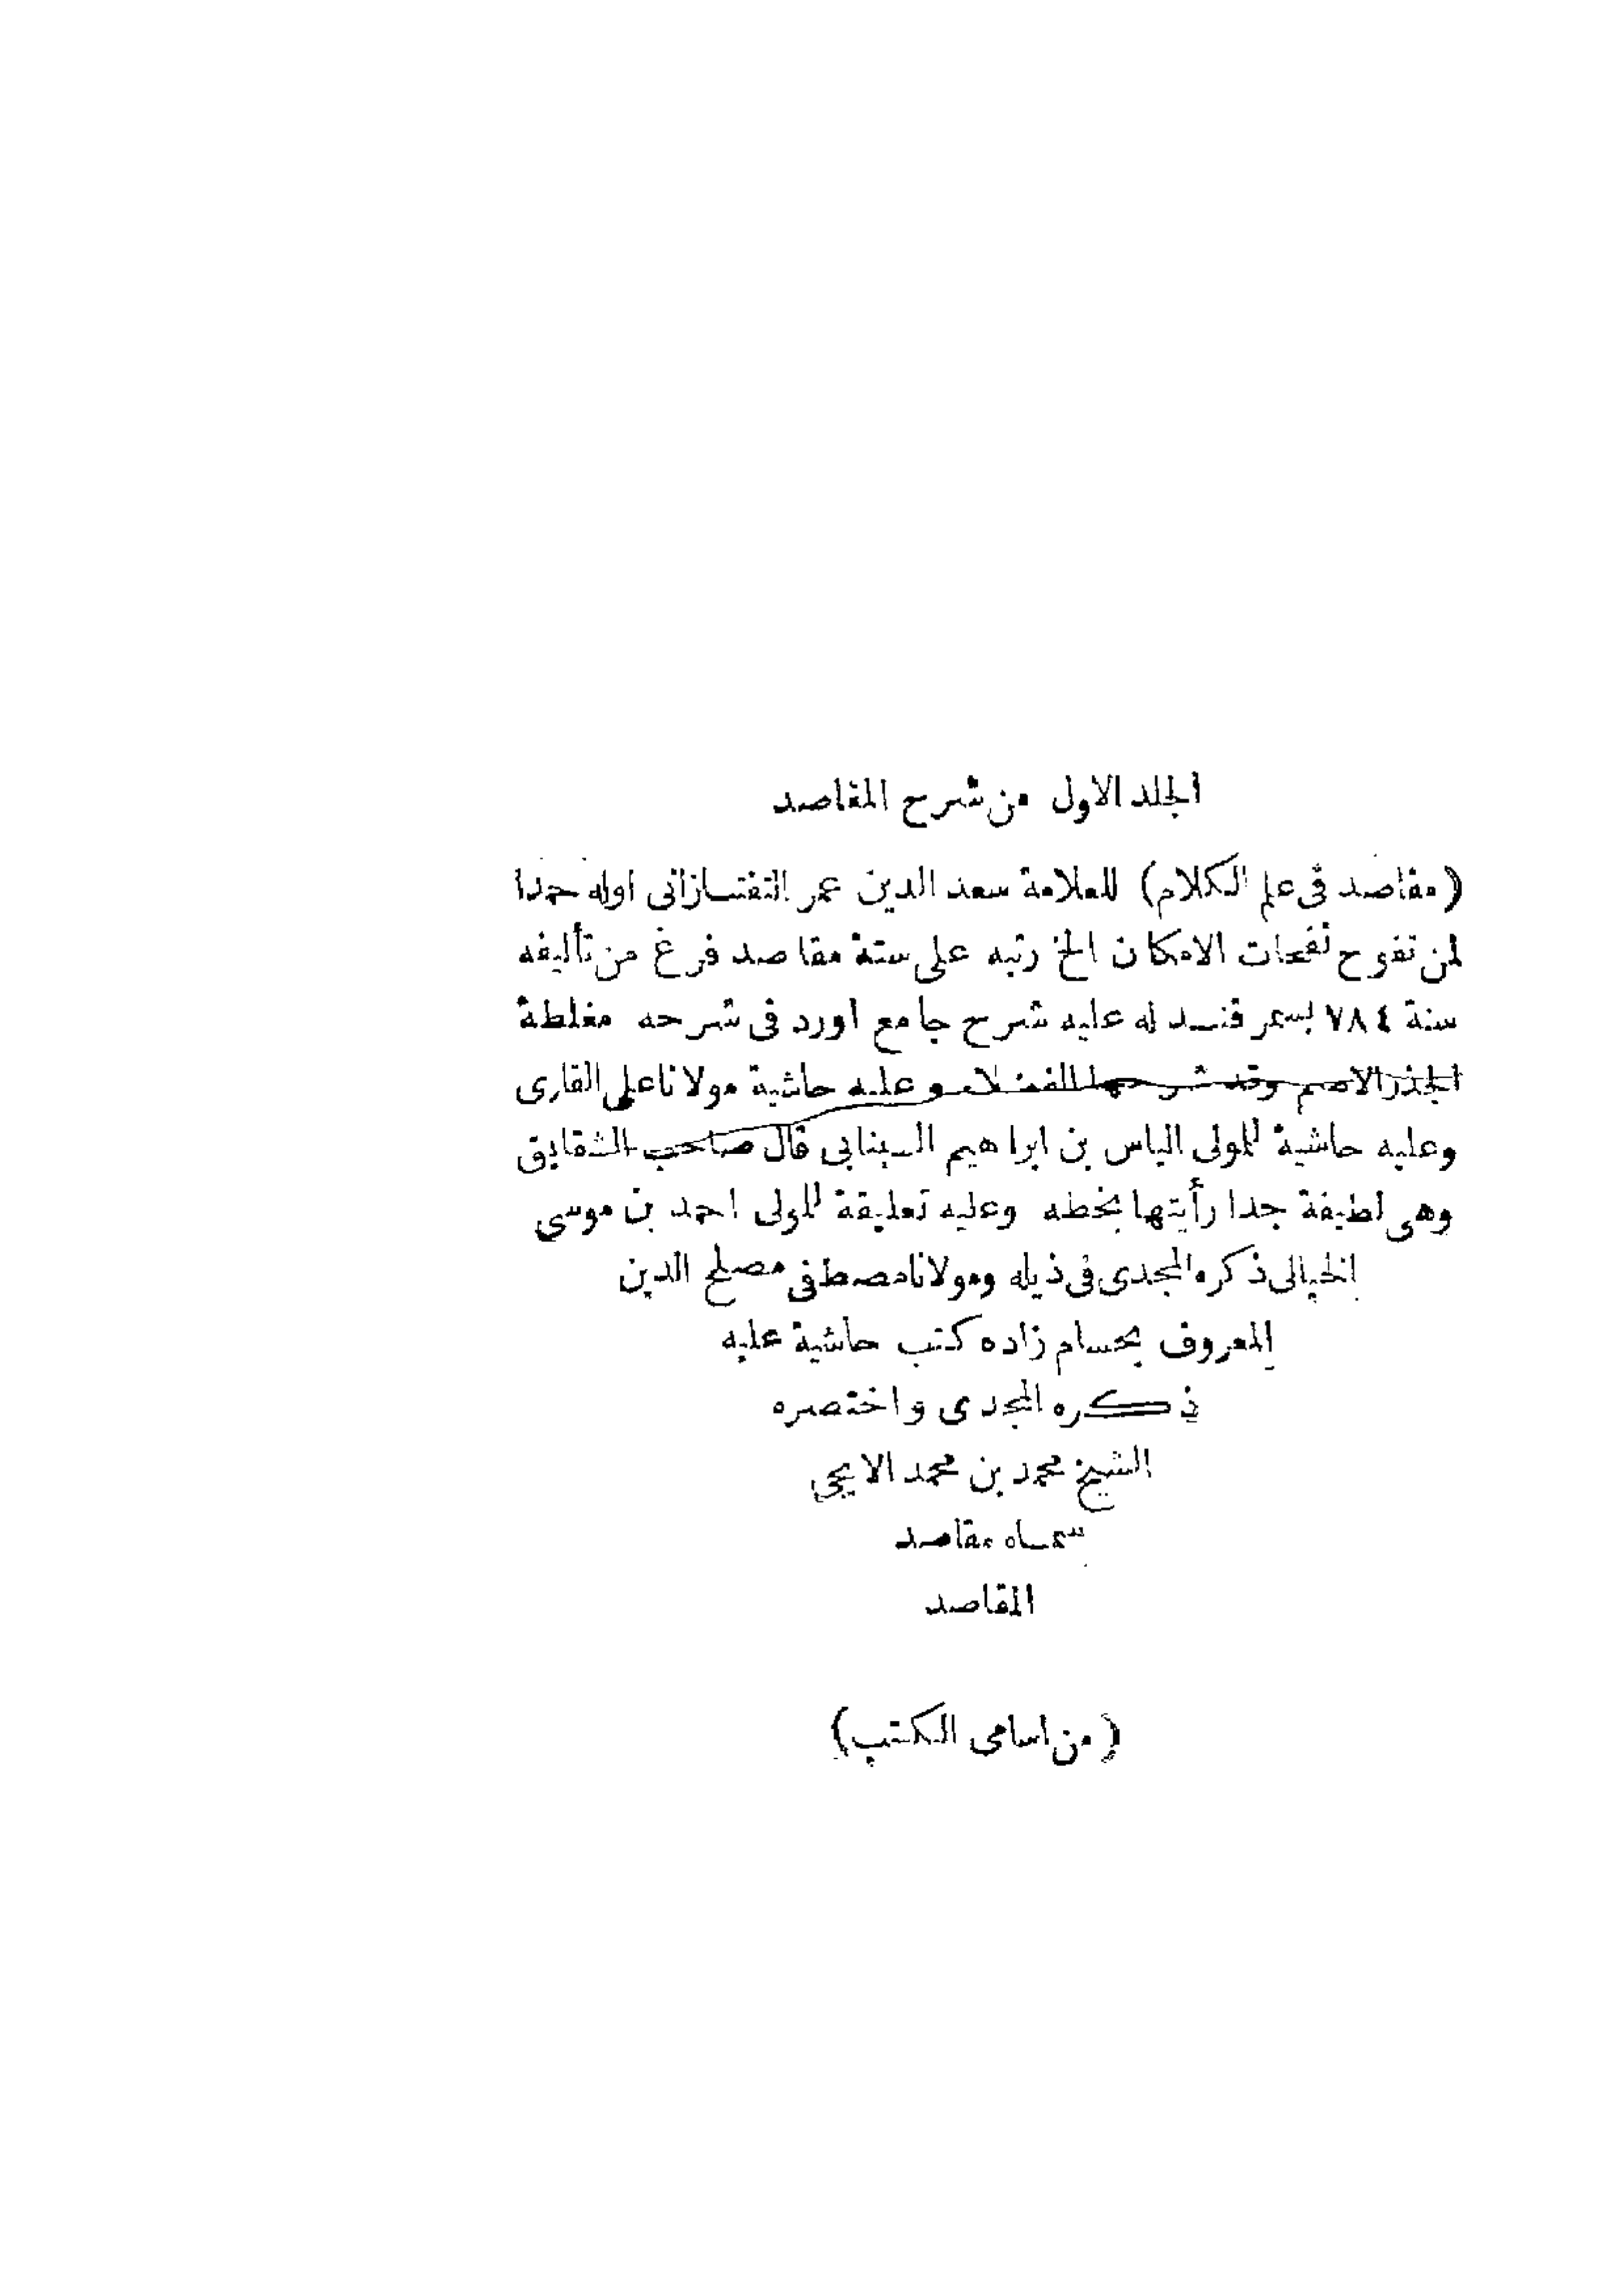 الجلد الاول من شرح المقاصد
(مقاصد فى علم الكلام) للعلامة سعد الدين عمر التفتازانى اوله حمدا
لمن تفوح نفحات الامكان الخ رتبه على ستة مقاصد فرغ من تأليفه
سنة ٧٨٤ بسمر قند له عليه شرح جامع اورد فى شرحه مغلطة
الجذر الاصم وقد شرحها للفضلاء وعليه حاشية مولانا على القارى
وعليه حاشية للمولى الياس بن ابراهيم السينابى قال صاحب الشقايق
وهى لطيفة جدا رأيتها بخطه وعليه تعليقة للمولى احمد بن موسى
الخيالى ذكره المجدى فى ذيله ومولانا مصطفى مصلح الدين
المعروف بحسام زاده كتب حاشية عليه
ذكره المجدى واختصره
الشيخ محمد بن محمد الايجى
سماه مقاصد
المقاصد
(من اسامى الكتب)